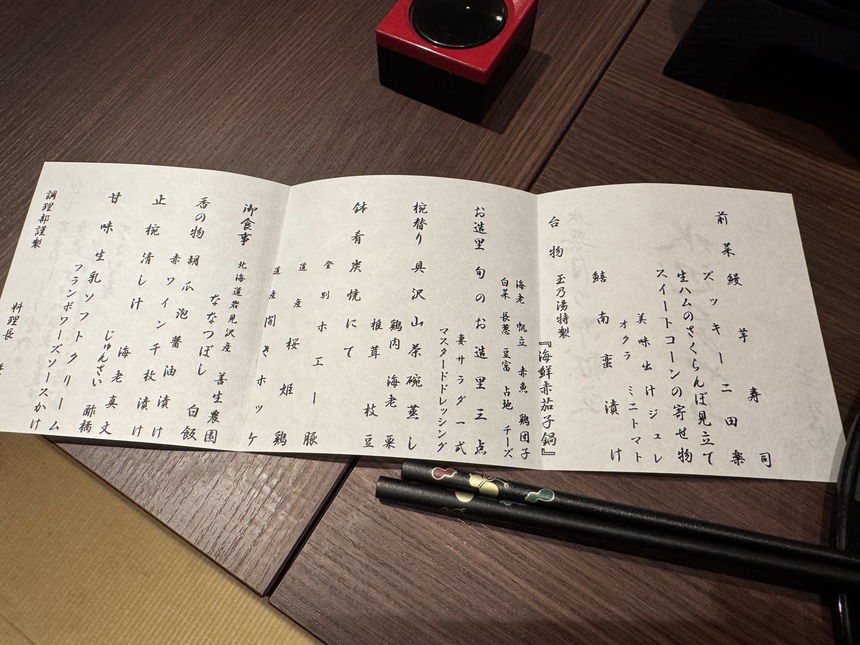 前菜 鰻芋寿司
ズッキーニ田楽
生ハムのさくらんぼ見立て
スイートコーンの寄せ物
美味出汁ジュレ
オクラ ミニトマト
鱚南蛮漬け
台物 玉乃湯特製
『海鮮赤茄子鍋』
海老 帆立 赤魚 鶏団子
白菜 長葱 豆富 占地 チーズ
お造里 旬のお造里三点
妻サラダ一式
マスタードドレッシング
椀替り 具沢山茶碗蒸し
鶏肉 海老 栗
椎茸 枝豆
鉢肴 炭焼にて
登別ホエー豚
道産桜姫鶏
道産開きホッケ
御食事 北海道岩見沢産 善生農園
ななつぼし 白飯
香の物 胡瓜泡醬油漬け
赤ワイン千枚漬け
止椀 清し汁 海老真丈
じゅんさい 酢橘
甘味 生乳ソフトクリーム
フランボワーズソースかけ
調理部謹製
料理長